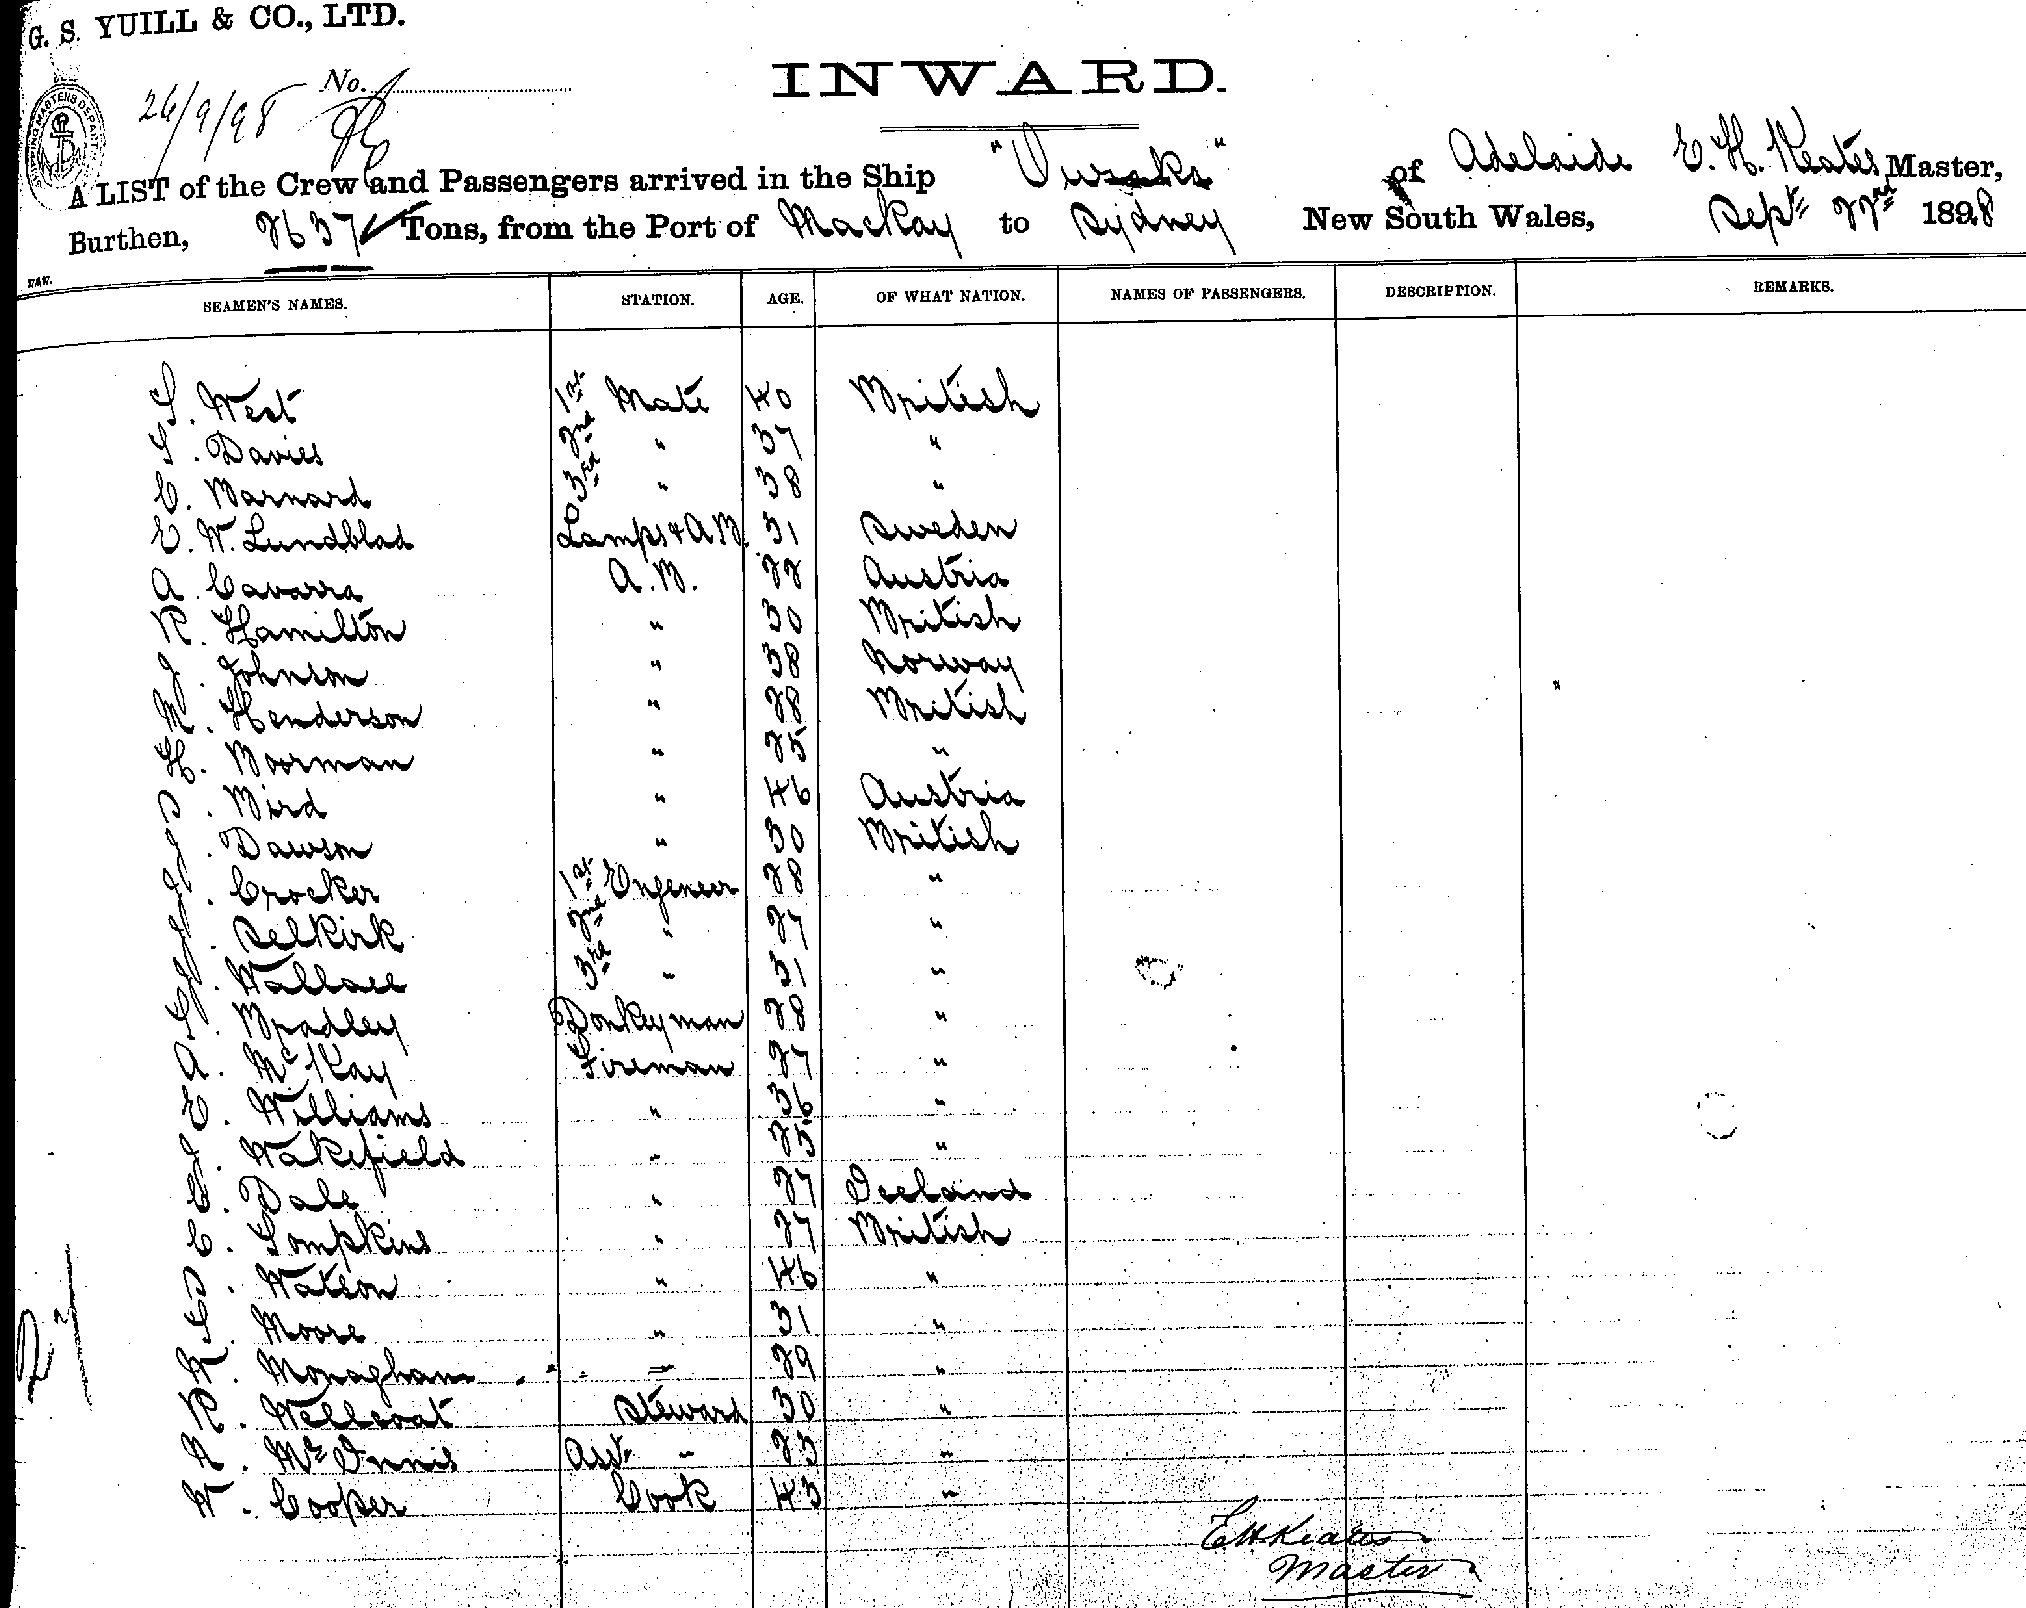 G. S. YUILL & CO., LTD.
INWARD.
26/9/98 No.
A LIST of the Crew and Passengers arrived in the Ship " " of Adelaide E. H. Keates, Master,
Burthen, 2637 Tons, from the Port of Mackay to Sydney New South Wales, Sept 22nd 1898
SEAMEN'S NAMES. STATION. AGE. OF WHAT NATION. NAMES OF PASSENGERS. DESCRIPTION. REMARKS.
S. West 1st Mate 40 British
Davies 2nd " 37 "
C. Barnard 3rd " 38 "
E. W. Lundblad Lamps & A.B. 31 Sweden
A. Cavarra A.B. 22 Austria
R. Hamilton " 30 British
J. Johnson " 38 Norway
M. Henderson " 28 British
H. Boorman " 25 "
P. Bird " 46 Austria
J. Dawson " 30 British
J. Crocker 1st Engeneer 28 "
J. Selkirk 2nd " 27 "
J. Wallace 3rd " 31 "
G. Bradley Donkeyman 28 "
A. McKay Fireman 27 "
E. Williams " 36 "
J. Wakefield " 25 "
C. Dale " 27 Iceland
C. Tompkins " 27 British
P. Watson " 46 "
G. Moore " 31 "
Monaghan " 29 "
R. Wellcoat Steward 30 "
A. McInnis Asst. " 23 "
W. Cooper Cook 43 "
E H Keates
Master